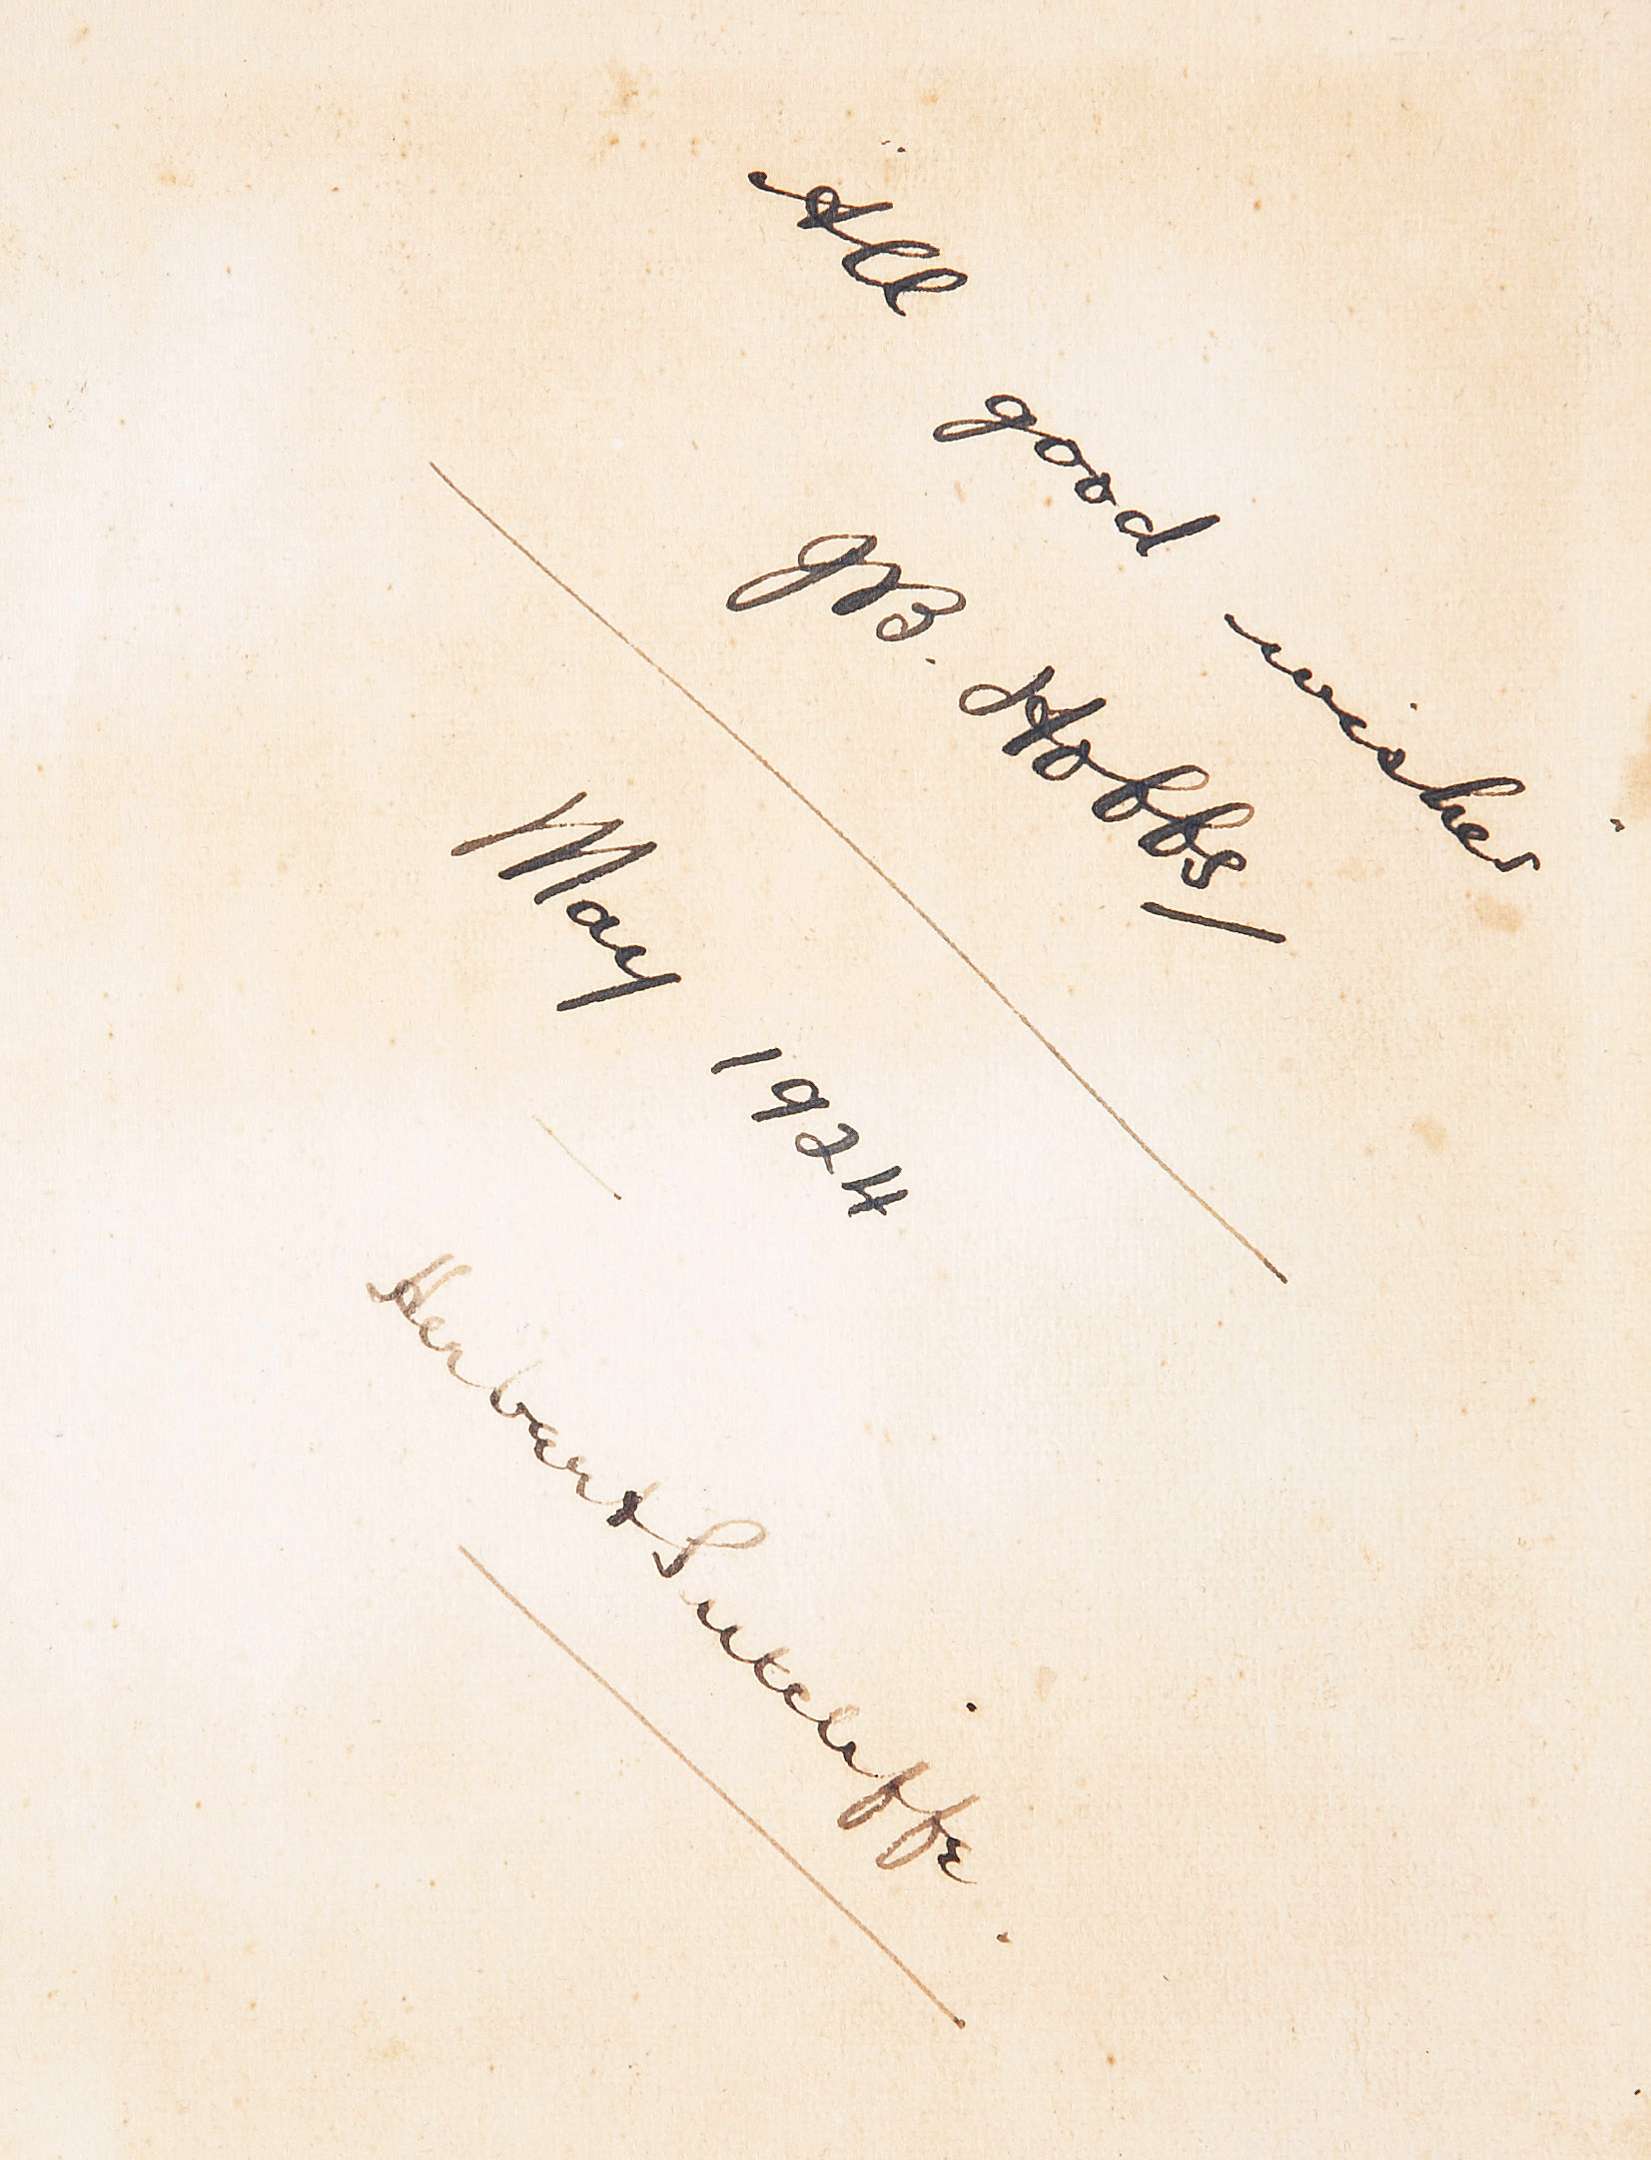 All good wishes
JB. Hobbs
May 1924
Herbert Sutcliffe.